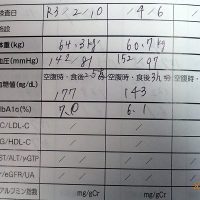 検査日 R3/2/10 /4/6
施設
体重(kg) 64.3kg 60.7kg
血圧(mmHg) 142/81 152/97
血糖値(mg/dL) 空腹時・食後2.5h 空腹時・食後3h 空腹時
177 143
HbA1c(%) 7.0 6.1
C/LDL-C / / /
G/HDL-C / / /
ST/ALT/γGTP / / / /
r/eGFR/UA / / / /
アルブミン指数 mg/gCr mg/gCr